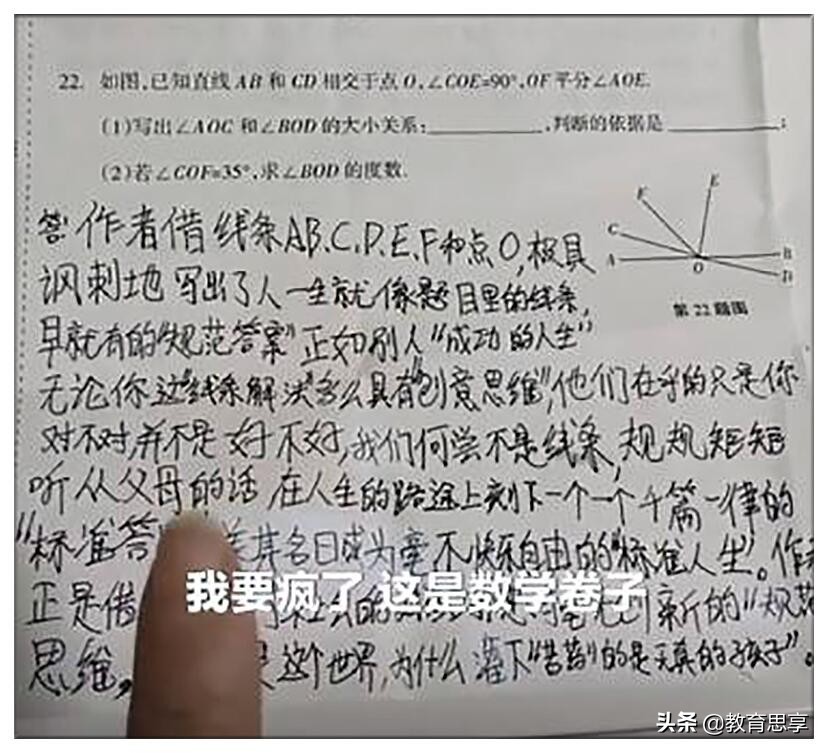 22. 如图,已知直线AB和CD相交于点O,∠COE=90°,OF平分∠AOE.
(1)写出∠AOC和∠BOD的大小关系:__________,判断的依据是__________;
(2)若∠COF=35°,求∠BOD的度数.
F
E
C
A
O
B
D
第22题图
答:作者借线条AB、C、D、E、F和点O,极具
讽刺地写出了人一生就像题目里的线条,
早就有的"规范答案"正如别人"成功的人生"
无论你这"线条解法"多么具有"创意思维",他们在乎的只是你
对不对,并不是好不好,我们何尝不是线条,规规矩矩
听从父母的话 在人生的路途上刻下一个一个千篇一律的
"标准答 美其名曰成为毫不快乐自由的"标准人生"。作
正是借 新的"规范
思维, 这个世界,为什么灌下"苦药"的是天真的孩子"。
我要疯了 这是数学卷子
头条 @教育思享